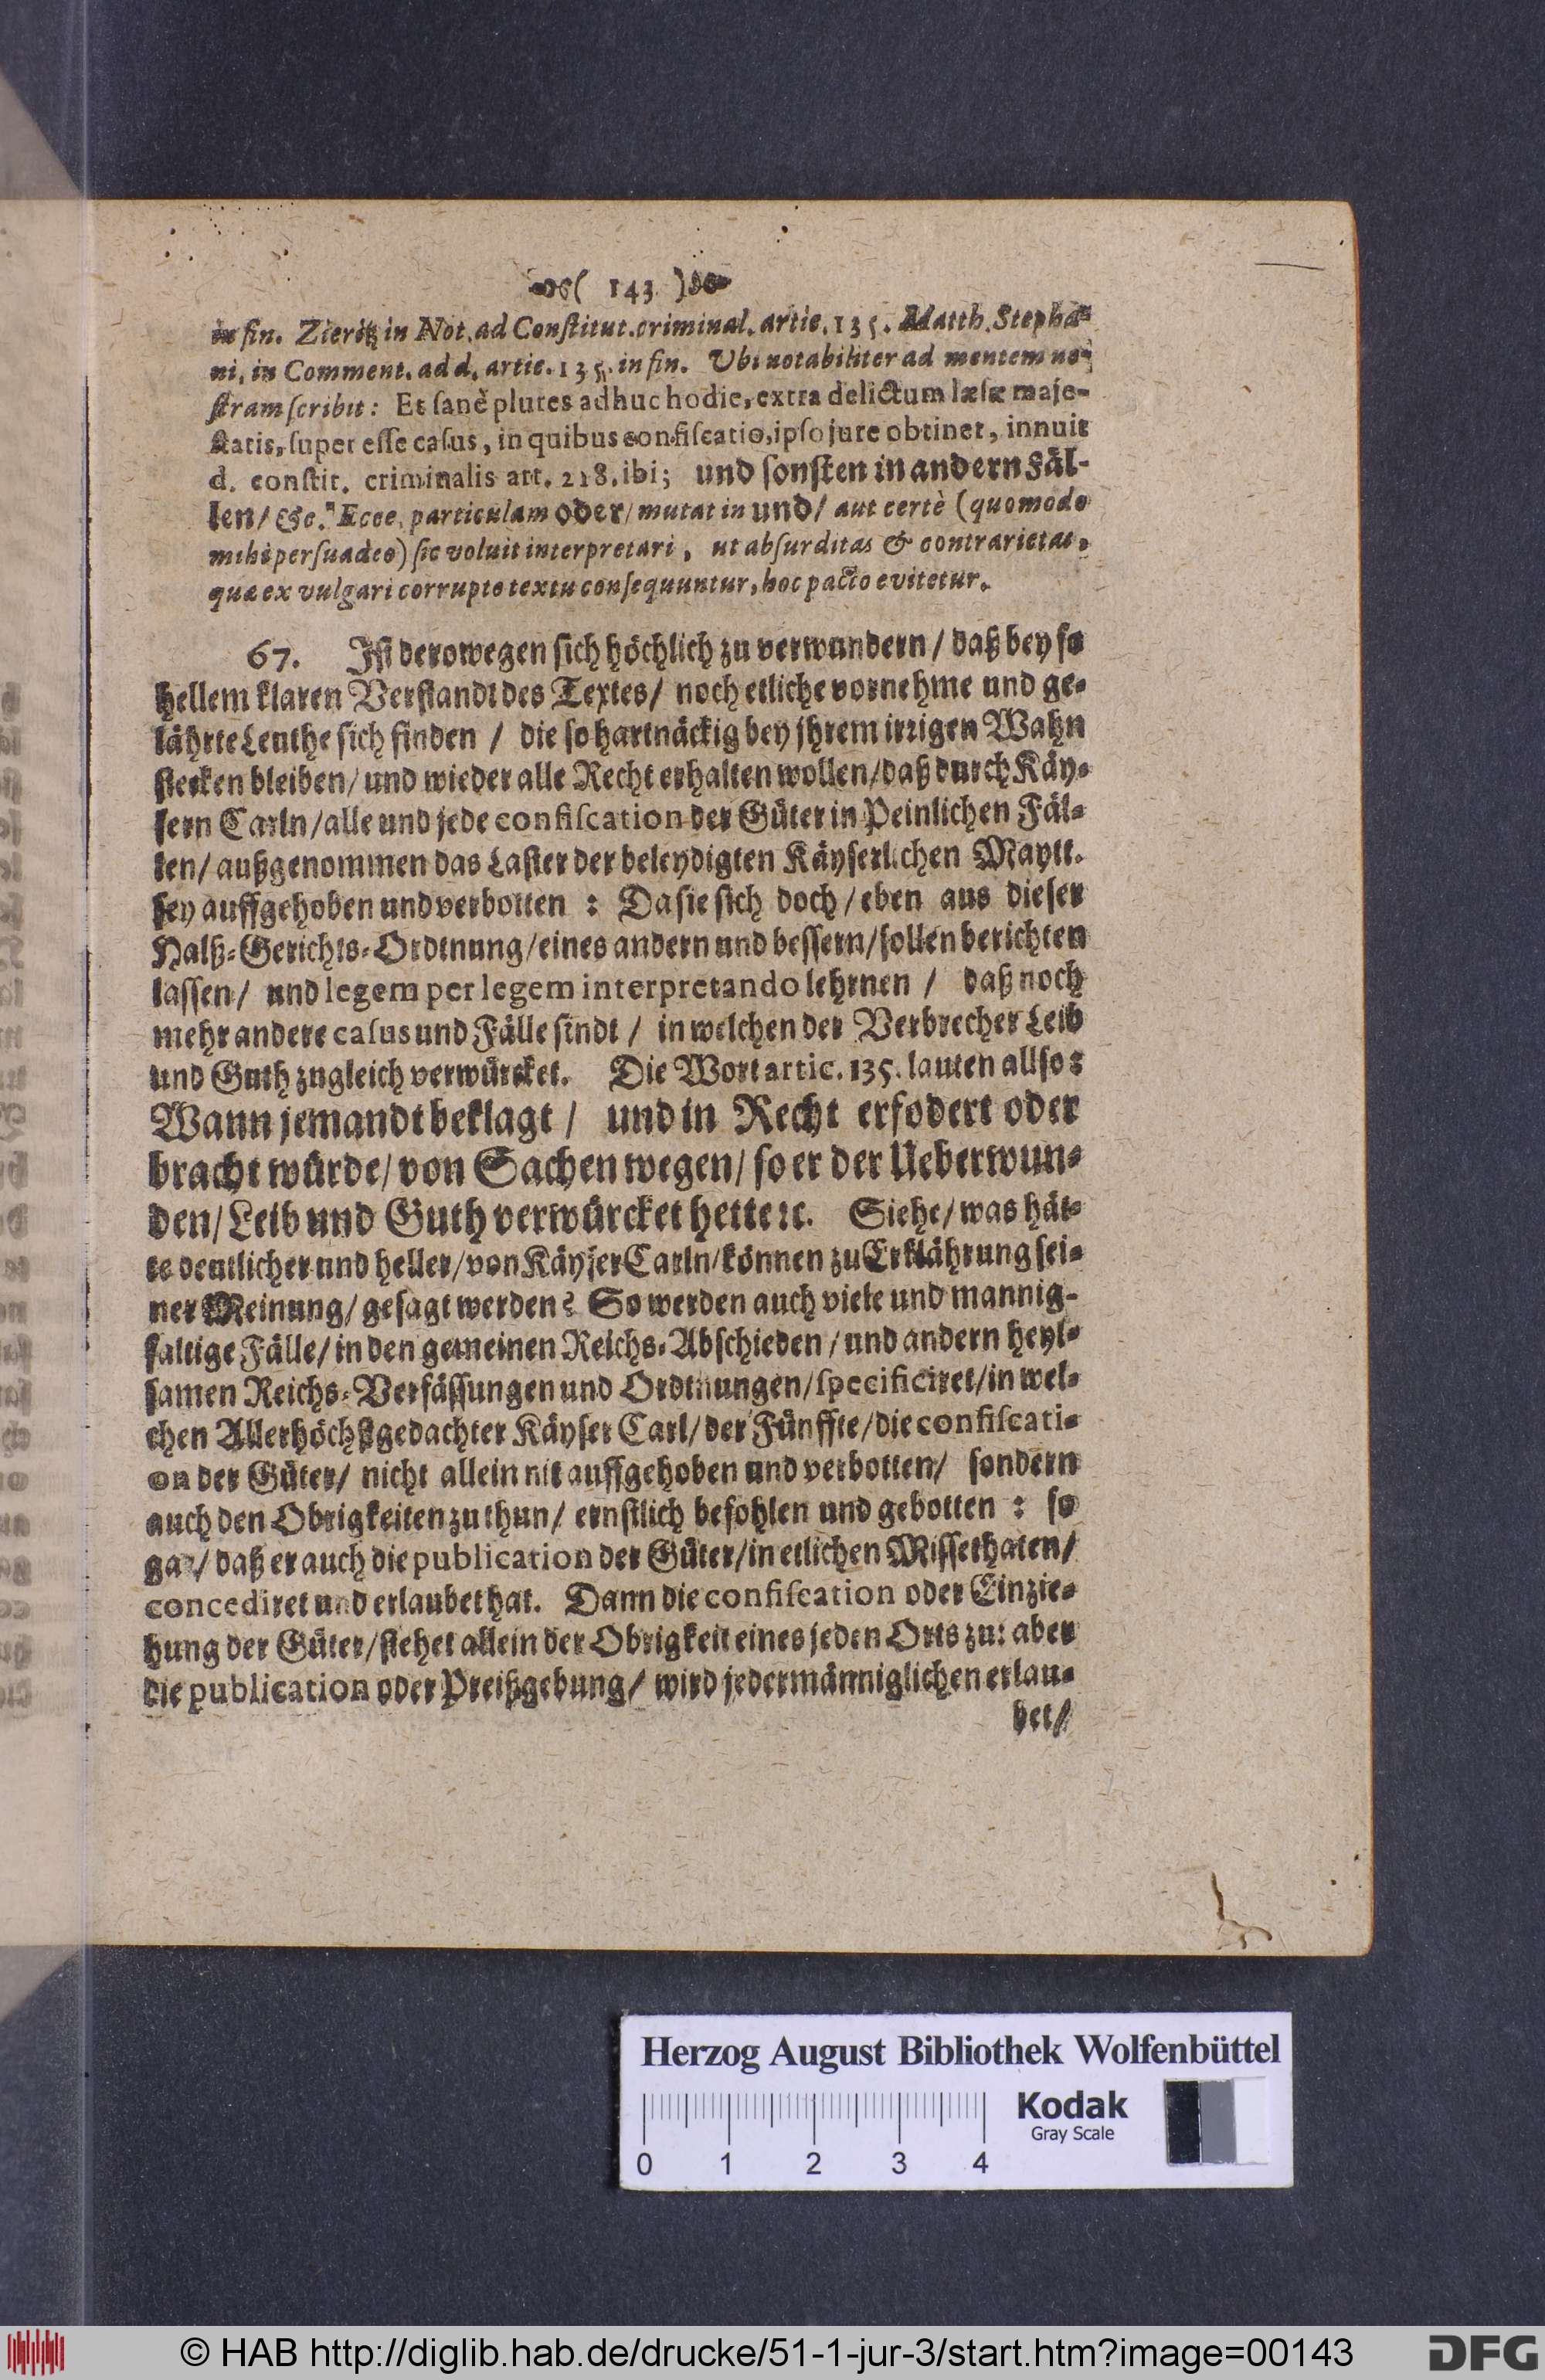 ( 143 )
in fin. Zieritz in Not. ad Conſtitut. criminal. artic. 135. Matth. Stepha-
ni, in Comment. ad d. artic. 135. in fin. Ubi notabiliter ad mentem no-
ſtram ſcribit: Et ſanè plures adhuc hodie, extra delictum læſæ maje-
ſtatis, ſuper eſſe caſus, in quibus confiſcatio, ipſo jure obtinet, innuit
d. conſtit. criminalis art. 218. ibi; und ſonſten in andern Fäl-
len/ &c. Ecce, particulam oder/ mutat in und/ aut certè (quomodo
mihi perſuadeo) ſic voluit interpretari, ut abſurditas & contrarietas,
quæ ex vulgari corrupto textu conſequuntur, hoc pacto evitetur.
67. Iſt derowegen ſich höchlich zu verwundern/ daß bey ſo
hellem klaren Verſtandt des Textes/ noch etliche vornehme und ge-
lährte Leuthe ſich finden / die ſo hartnäckig bey jhrem irrigen Wahn
ſtecken bleiben/ und wieder alle Recht erhalten wollen/ daß durch Käy-
ſern Carln/ alle und jede confiſcation der Güter in Peinlichen Fäl-
len/ außgenommen das Laſter der beleydigten Käyſerlichen Maytt.
ſey auffgehoben und verbotten : Da ſie ſich doch/ eben aus dieſer
Halß-Gerichts-Ordtnung/ eines andern und beſſern/ ſollen berichten
laſſen/ und legem per legem interpretando lehrnen / daß noch
mehr andere caſus und Fälle ſindt / in welchen der Verbrecher Leib
und Guth zugleich verwürcket. Die Wort artic. 135. lauten allſo:
Wann jemandt beklagt / und in Recht erfodert oder
bracht würde/ von Sachen wegen/ ſo er der Ueberwun-
den/ Leib und Guth verwürcket hette ꝛc. Siehe/ was hät-
te deutlicher und heller/ von Käyſer Carln/ können zu Erklährung ſei-
ner Meinung/ geſagt werden? So werden auch viele und mannig-
faltige Fälle/ in den gemeinen Reichs-Abſchieden/ und andern heyl-
ſamen Reichs-Verfäſſungen und Ordtnungen/ ſpecificiret/ in wel-
chen Allerhöchſtgedachter Käyſer Carl/ der Fünffte/ die confiſcati-
on der Güter/ nicht allein nit auffgehoben und verbotten/ ſondern
auch den Obrigkeiten zu thun/ ernſtlich befohlen und gebotten : ſo
gar/ daß er auch die publication der Güter/ in etlichen Miſſethaten/
concediret und erlaubet hat. Dann die confiſcation oder Einzie-
hung der Güter/ ſtehet allein der Obrigkeit eines jeden Orts zu: aber
die publication oder Preißgebung/ wird jedermänniglichen erlau-
bet/
Herzog August Bibliothek Wolfenbüttel
Kodak
Gray Scale
0 1 2 3 4
© HAB http://diglib.hab.de/drucke/51-1-jur-3/start.htm?image=00143
DFG